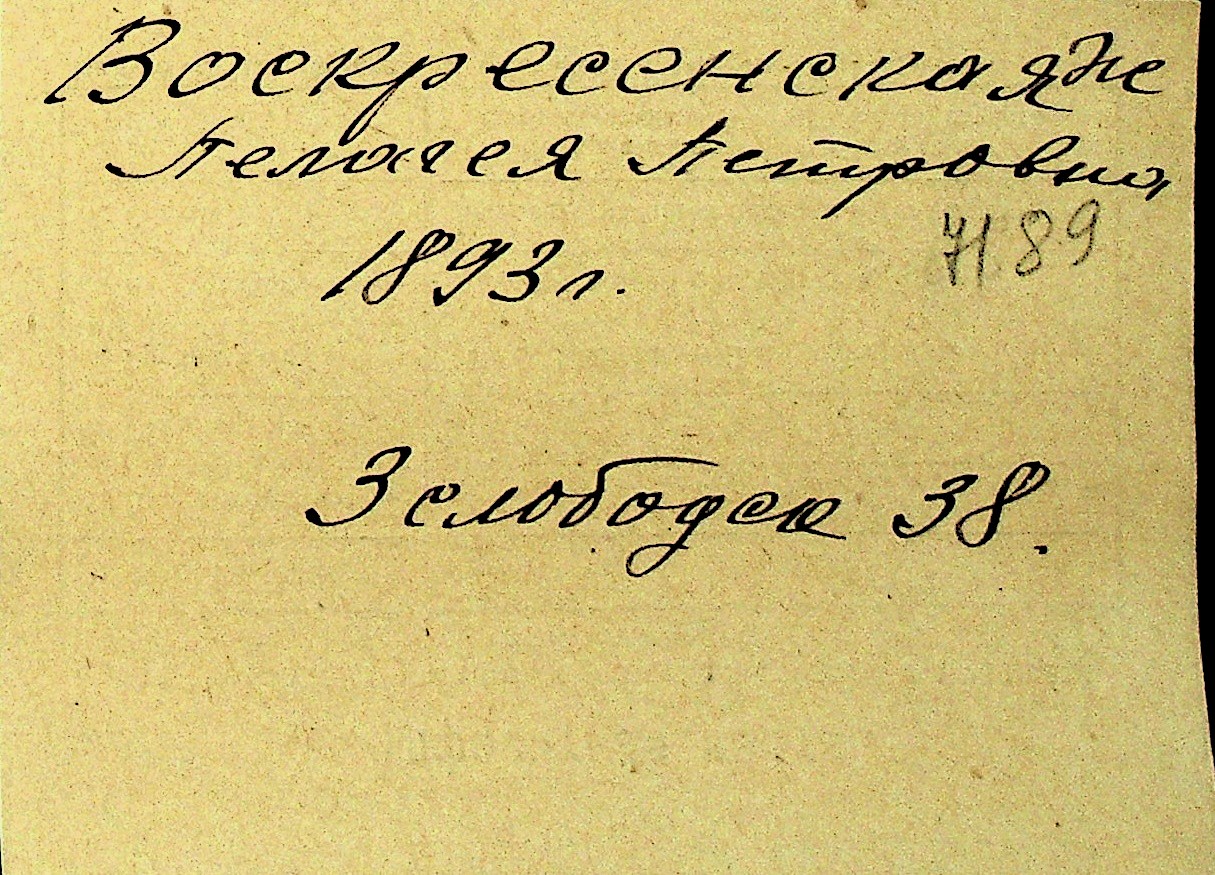 Воскресенская
Пелагея Петровна
1893 г. 7189
Зслободск 38.